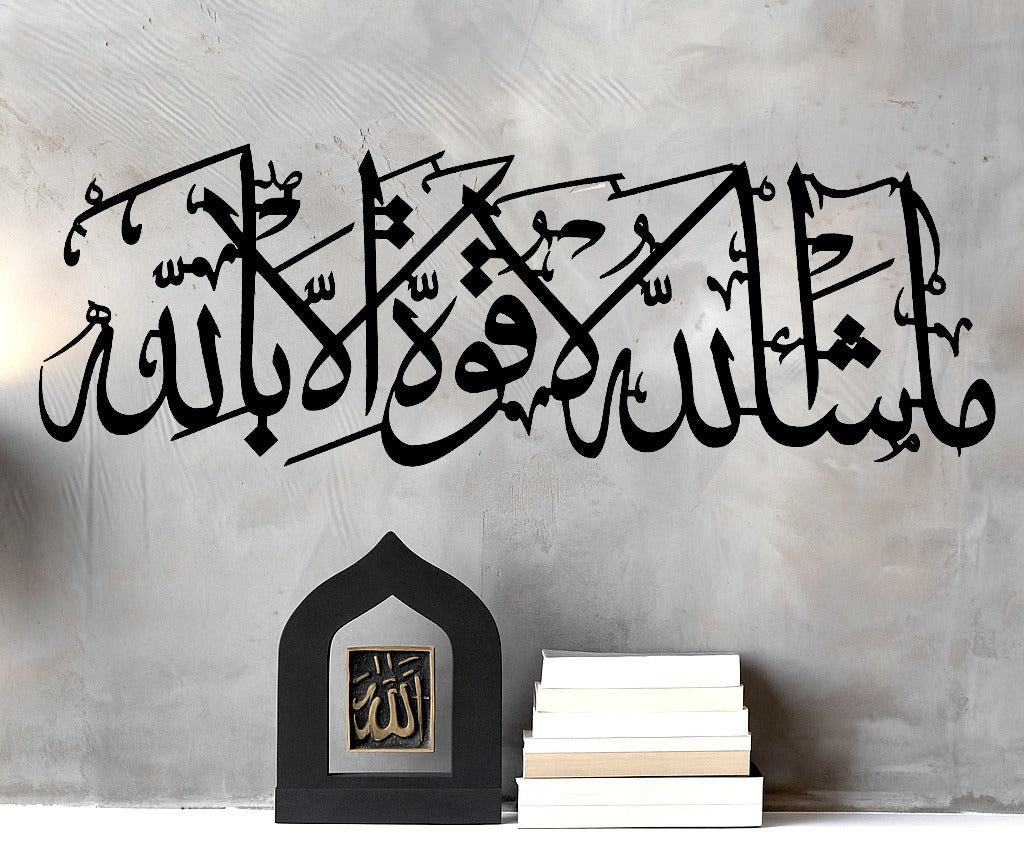 ما شاء الله لا قوة إلا بالله
الله